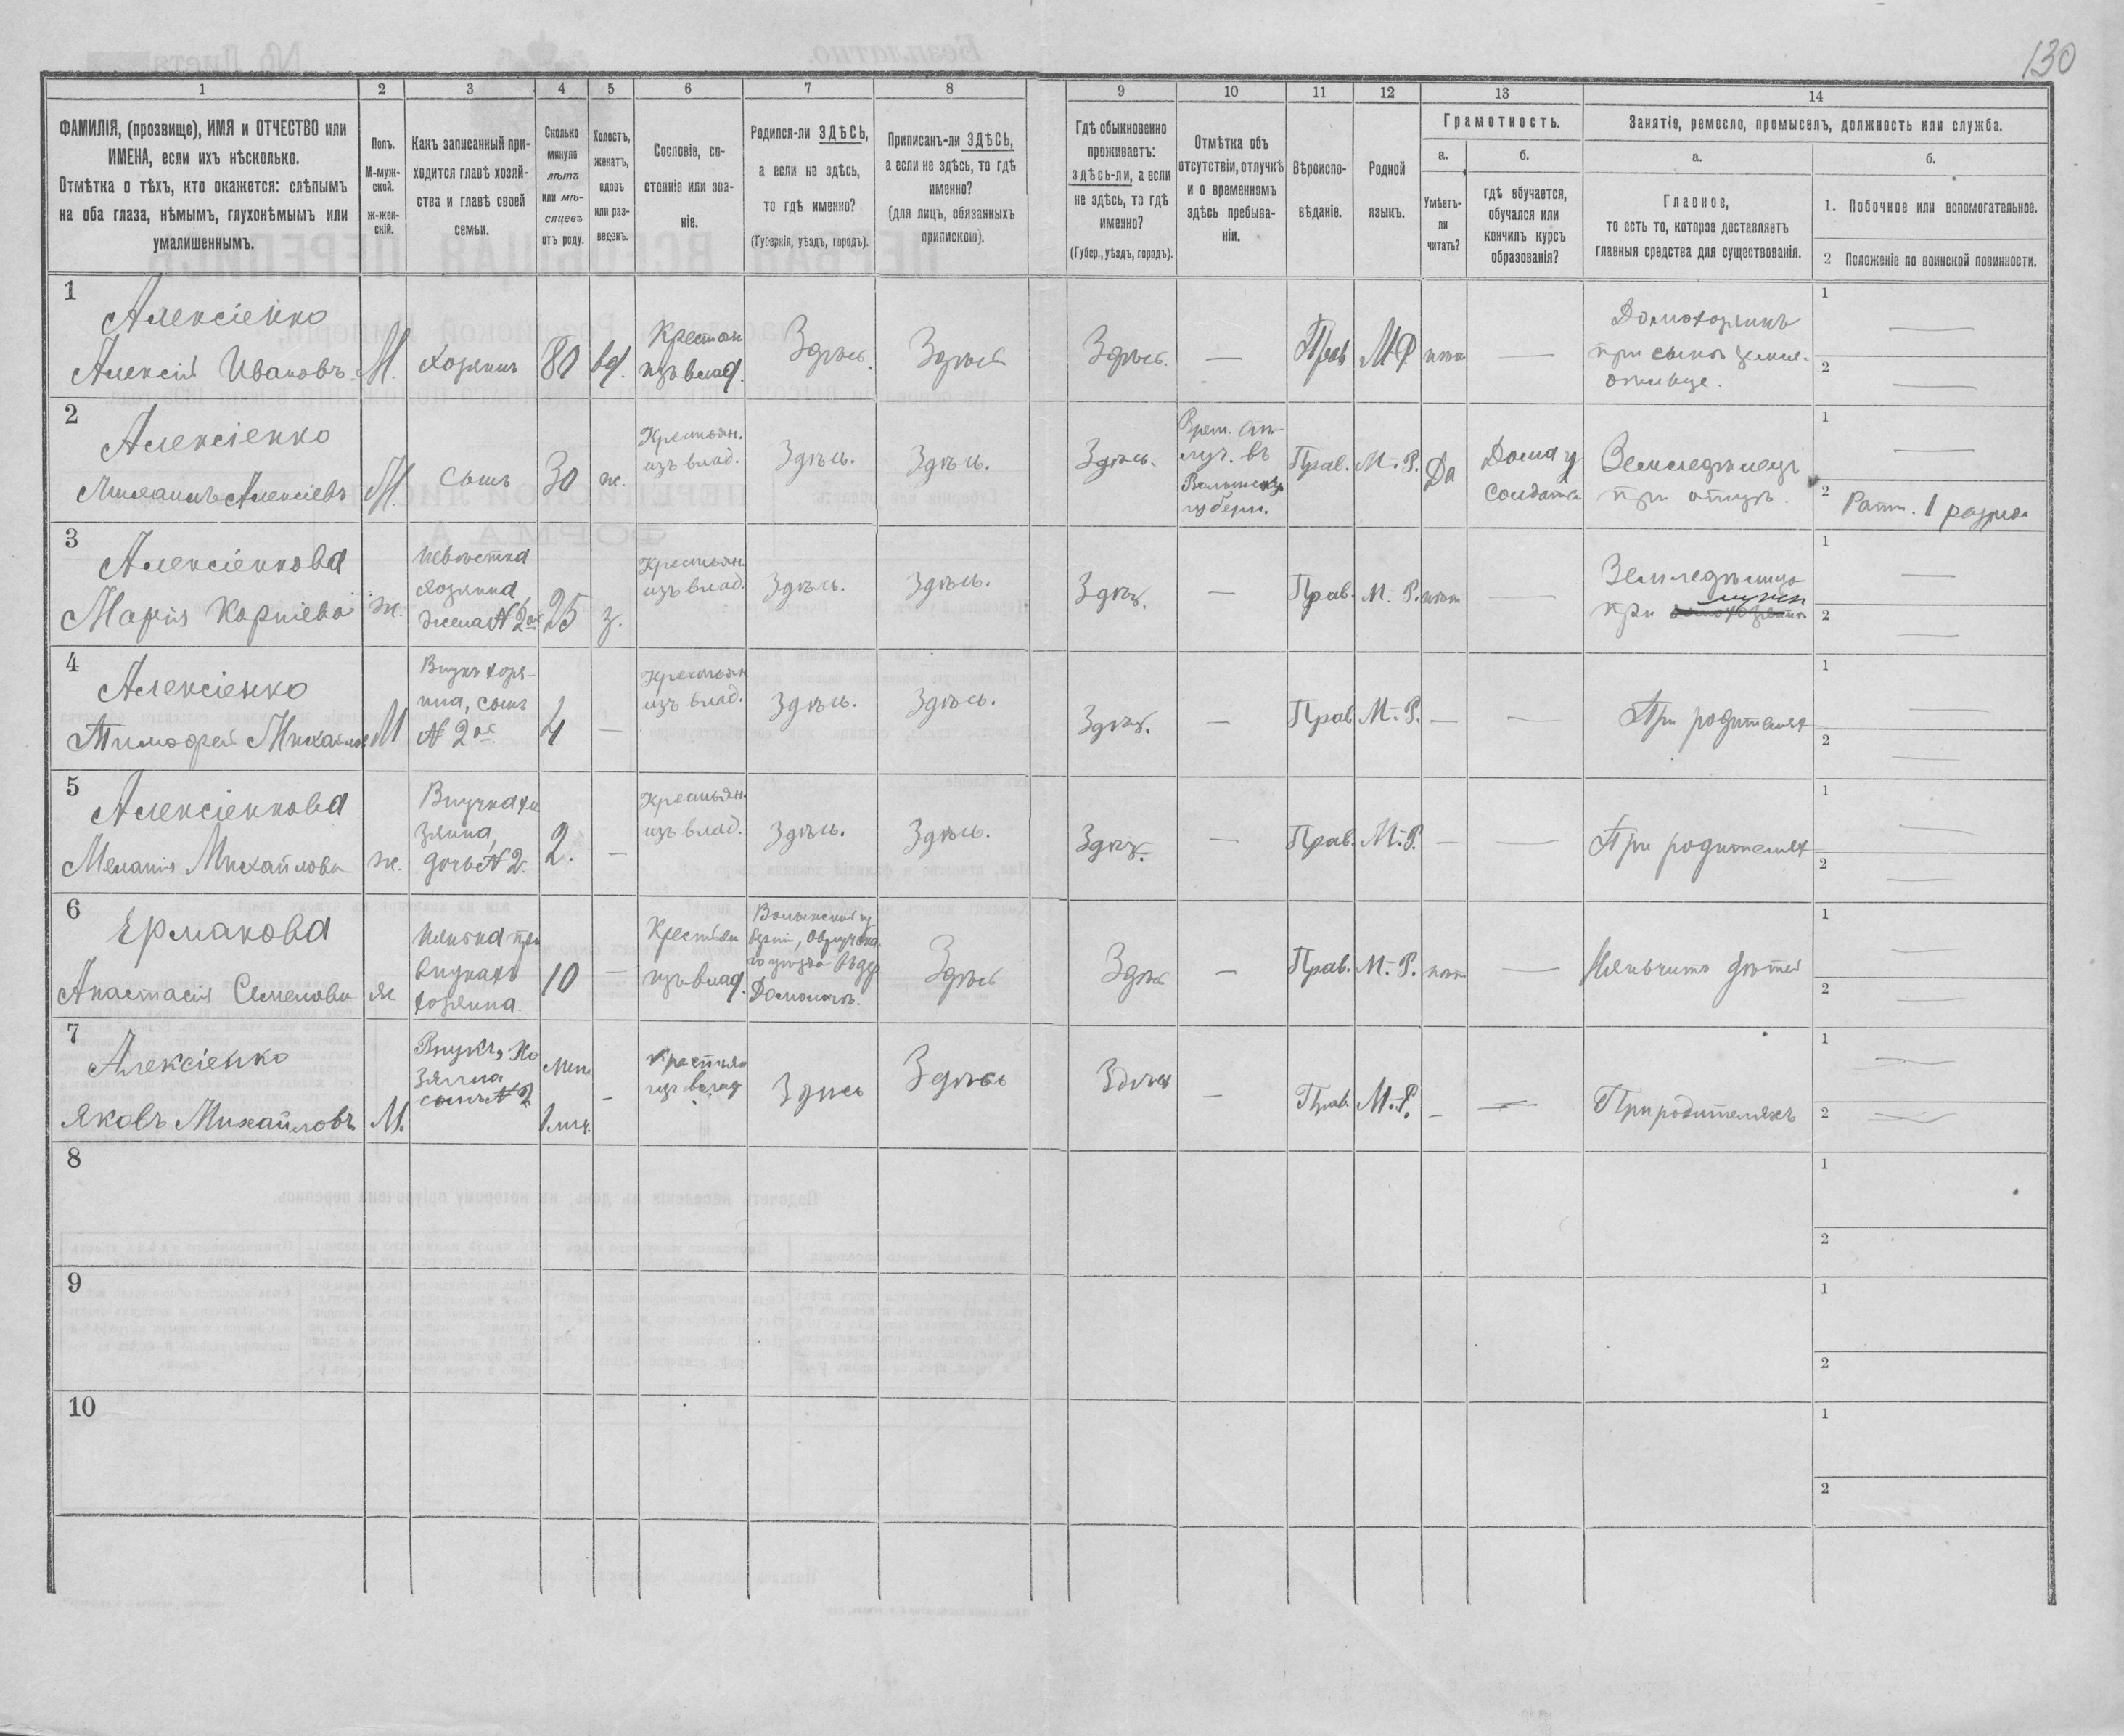 130
1 2 3 4 5 6 7 8 9 10 11 12 13 14
ФАМИЛІЯ, (прозвище), ИМЯ и ОТЧЕСТВО или
ИМЕНА, если ихъ нѣсколько.
Отмѣтка о тѣхъ, кто окажется: слѣпымъ
на оба глаза, нѣмымъ, глухонѣмымъ или
умалишеннымъ.
Полъ.
М-муж-
ской.
ж-жен-
скій.
Какъ записанный при-
ходится главѣ хозяй-
ства и главѣ своей
семьи.
Сколько
минуло
лѣтъ
или мѣ-
сяцевъ
отъ роду.
Холостъ,
женатъ,
вдовъ
или раз-
веденъ.
Сословіе, со-
стояніе или зва-
ніе.
Родился-ли ЗДѢСЬ,
а если не здѣсь,
то гдѣ именно?
(Губернія, уѣздъ, городъ).
Приписанъ-ли ЗДѢСЬ,
а если не здѣсь, то гдѣ
именно?
(для лицъ, обязанныхъ
припискою).
Гдѣ обыкновенно
проживаетъ:
здѣсь-ли, а если
не здѣсь, то гдѣ
именно?
(Губер., уѣздъ, городъ).
Отмѣтка объ
отсутствіи, отлучкѣ
и о временномъ
здѣсь пребыва-
ніи.
Вѣроиспо-
вѣданіе.
Родной
языкъ.
Грамотность.
а.
Умѣетъ-
ли
читать?
б.
гдѣ обучается,
обучался или
кончилъ курсъ
образованія?
Занятіе, ремесло, промыселъ, должность или служба.
а.
Главное,
то есть то, которое доставляетъ
главныя средства для существованія.
б.
1. Побочное или вспомогательное.
2 Положеніе по воинской повинности.
1
Алексіенко
Алексій Ивановъ
М.
хозяинъ
80
вд.
Крестьян
изъ влад.
Здѣсь.
Здѣсь
Здѣсь.
—
Прав
М Р
нѣтъ
—
Домохозяинъ
при сынѣ земле-
дѣльце.
1 —
2 —
2
Алексіенко
Михаилъ Алексіевъ
М.
сынъ
30
ж.
Крестьян.
изъ влад.
Здѣсь.
Здѣсь.
Здѣсь.
Врем. от-
луч. въ
Волынской
губерн.
Прав.
М.-Р.
Да
Дома у
солдата
Земледѣлецъ
при отцѣ.
1 —
2 Ратн. 1 разряда
3
Алексіенкова
Марія Корніева
ж.
невѣстка
хозяина,
жена N 2ой
25
з.
Крестьян.
изъ влад.
Здѣсь.
Здѣсь.
Здѣсь.
—
Прав.
М.-Р.
нѣтъ
—
Земледѣлица
при мужѣ
1 —
2 —
4
Алексіенко
Тимофей Михайловъ
М
Внукъ хозя-
ина, сынъ
N 2ой
4
—
Крестьян
изъ влад.
Здѣсь.
Здѣсь.
Здѣсь.
—
Прав
М.-Р.
—
—
При родителях
1 —
2 —
5
Алексіенкова
Меланія Михайлова
ж.
Внучка хо
зяина,
дочь N 2.
2.
—
Крестьян.
изъ влад.
Здѣсь.
Здѣсь.
Здѣсь.
—
Прав.
М.-Р.
—
—
При родителях
1 —
2 —
6
Ермакова
Анастасія Семенова
ж
нянька при
внукахъ
хозяина.
10
—
Крестьян
изъ влад.
Волынской гу
берніи, Овручска-
го уѣзда въ дер.
Здѣсь
Здѣсь
—
Прав.
М.-Р.
нѣтъ
—
Няньчитъ дѣтей
1 —
2 —
7
Алексіенко
Яковъ Михайловъ
М.
Внукъ, хо
зяина
сынъ N 2
Мен.
1 мѣс.
-
крестьян
изъ влад
Здѣсь
Здѣсь
Здѣсь
—
Прав.
М.-Р.
—
—
При родителяхъ
1 —
2 —
8
1
2
9
1
2
10
1
2